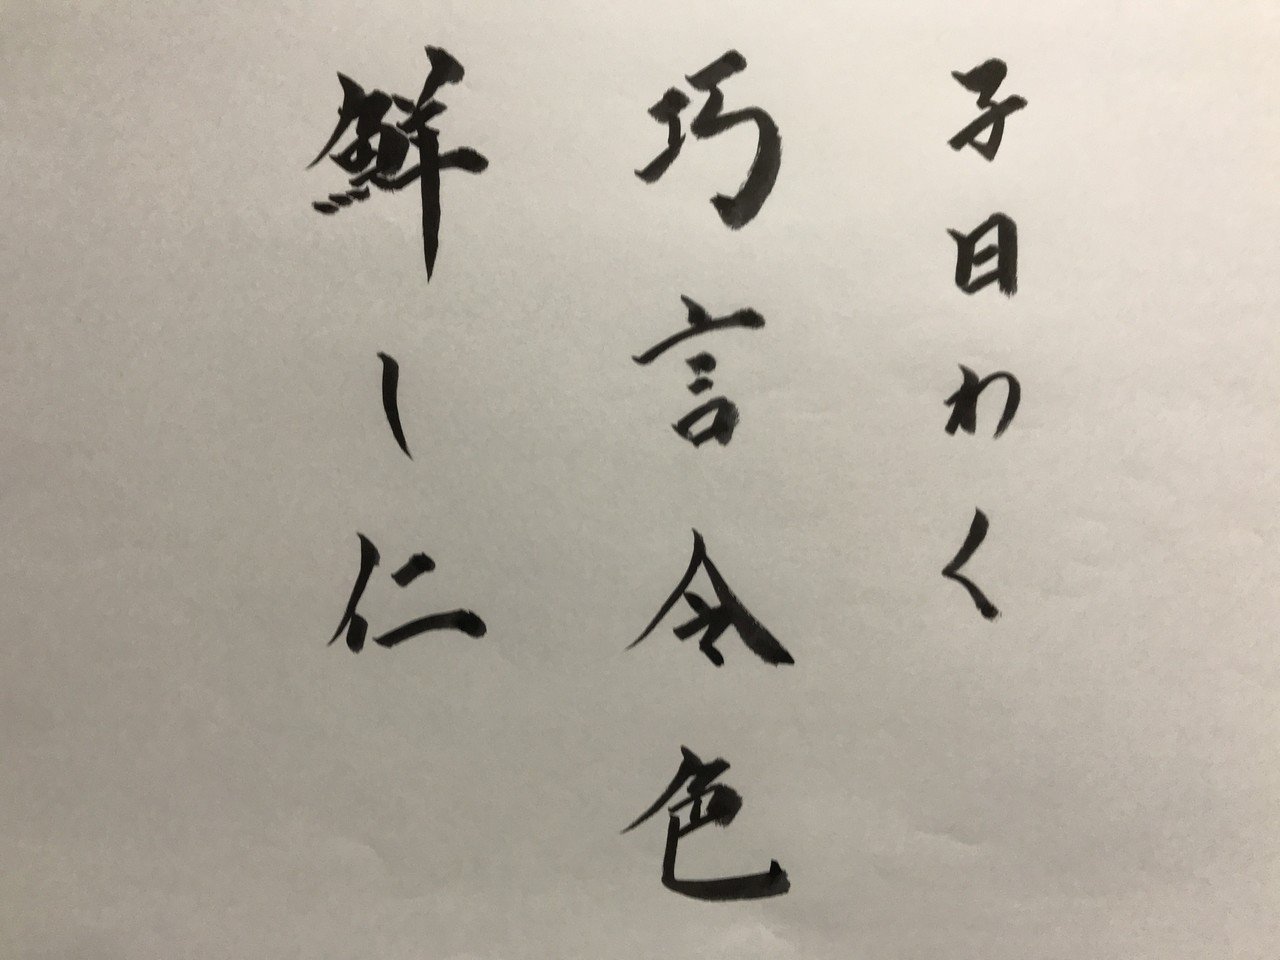 子曰わく
巧言令色
鮮し仁